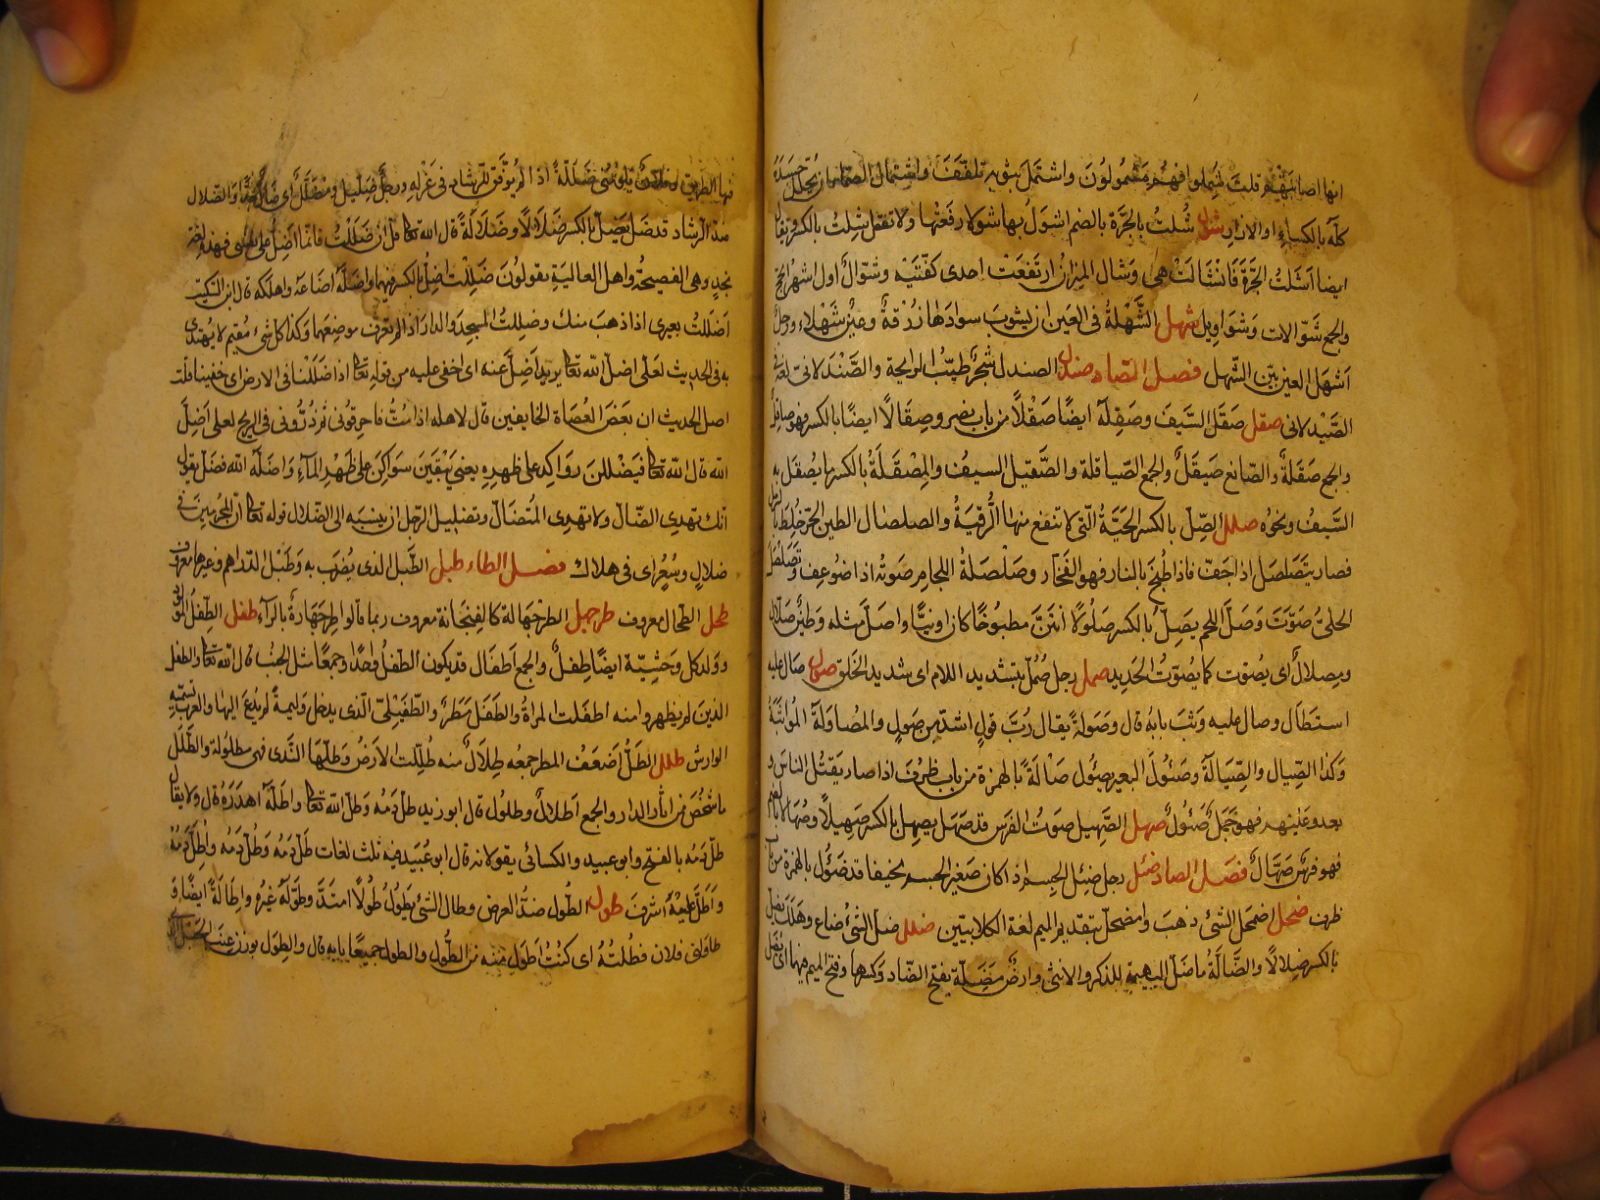 انها اصابتهم قلت شملوا فهم مشمولون واشتمل بثوبه تلفف واشتمال الصماء ان يجلل جسده
كله بالكساء او الازار شول شلت بالجرة بالضم اشول بها شولا رفعتها ولا تقل شلت بالكسر ويقال
ايضا اشلت الجرة فانشالت هي وشال الميزان ارتفعت احدى كفتيه وشوال اول اشهر الحج
والجمع شوالات وشواويل شهل الشهلة في العين ان يشوب سوادها زرقة وعين شهلاء ورجل
اشهل العين بين الشهل فصل الصاد صندل الصندل شجر طيب الرايحة والصندلاني لغة في
الصيدلاني صقل صقل السيف وصقله ايضا صقلا من باب نصر وصقالا ايضا بالكسر فهو صاقل
والجمع صقلة والصانع صيقل والجمع الصياقلة والصقيل السيف والمصقلة بالكسر ما يصقل به
السيف ونحوه صلل الصل بالكسر الحية التي لا تنفع منها الرقية والصلصال الطين الحر خلط بالرمل
فصار يتصلصل اذا جف فاذا طبخ بالنار فهو الفخار وصلصلة اللجام صوته اذا ضوعف وتصلصل
الحلي صوت وصل اللحم يصل بالكسر صلولا انتن مطبوخا كان او نيا واصل مثله وطين صلال
ومصلال اي يصوت كما يصوت الحديد صمل رجل صمل بتشديد اللام اي شديد الخلق صول صال عليه
استطال وصال عليه وثب بابه قال وصولة يقال رب قول اشد من صول والمصاولة المواثبة
وكذا الصيال والصيالة وصئول البعير يصئول صآلة بالهمزة من باب ظرف اذا صار يقتل الناس و
يعدو عليهم فهو جمل صئول صهل الصهيل صوت الفرس قد صهل يصهل بالكسر صهيلا وصهالا بالضم
فهو فرس صهال فصل الضاد ضئل رجل ضئيل الجسم اذا كان صغير الجسم نحيفا قد ضئول بالهمزة من باب
ظرف ضحل اضمحل الشئ ذهب وامضحل بتقديم الميم لغة الكلابيين ضلل ضل الشئ ضاع وهلك يضل
بالكسر ضلالا والضالة ما ضل من البهيمة للذكر والانثى وارض مضلة بفتح الضاد وكسرها وفتح الميم فيهما اي يضل
فيها الطريق وفلان يلومني ضلة اذا لم يوفق للرشاد في عذله ورجل ضليل ومضلل اي ضال جدا والضلال
ضد الرشاد قد ضل يضل بالكسر ضلالا وضلالة قال الله تعا قل ان ضللت فانما اضل على نفسي فهذه لغة
نجد وهي الفصيحة واهل العالية يقولون ضللت اضل بالكسر فيهما واضله اضاعه واهلكه قال ابن السكيت
اضللت بعيري اذا ذهب منك وضللت المسجد والدار اذا لم تعرف موضعهما وكذا كل شئ مقيم لا يهتدى
به في الحديث لعلي اضل الله تعا يريد اضل عنه اي اخفى عليه من قوله تعا اذا ضللنا في الارض اي خفينا قلت
اصل الحديث ان بعض العصاة الخايفين قال لاهله اذا مت فاحرقوني ثم ذروني في الريح لعلي اضل
الله قال الله تعا فيضللن رواكد على ظهره يعني يبقين سواكن على ظهر الماء واضله الله فضل يقول
انك تهدي الضال ولا تهدي المتضال وتضليل الرجل ان ينسبه الى الضلال قوله تعا ان المجرمين في
ضلال وسعر اي في هلاك فصل الطاء طبل الطبل الذي يضرب به وطبل الدراهم وغيرها معروف
طحل الطحال معروف طرجهل الطرجهالة كالفنجانة معروف ربما قالوا طرجهارة بالراء طفل الطفل المولود
وولد كل وحشية ايضا طفل والجمع اطفال قد يكون الطفل واحدا وجمعا مثل الجنب قال الله تعا والطفل
الذين لم يظهروا منه اطفلت المراة والطفل مطر والطفيلي الذي يدخل وليمة لم يدع اليها والعرب تسميه
الوارش طلل الطل اضعف المطر جمعه طلال منه طلت الارض وطلها الندى فهي مطلولة والطلل
ما شخص من اثار الدار والجمع اطلال وطلول قال ابو زيد طل دمه وطل الله تعا واطله اهدره قال ولا يقال
طل دمه بالفتح وابو عبيد والكسائي يقولانه قال ابو عبيد فيه ثلث لغات طل دمه وطل دمه واطل دمه
واطل عليه اشرف طول الطول ضد العرض وطال الشئ يطول طولا امتد وطوله غيره واطاله ايضا و
طاولني فلان فطلته اي كنت اطول منه من الطول والطول جميعا بابه قال والطول بوزن عنب الحبل